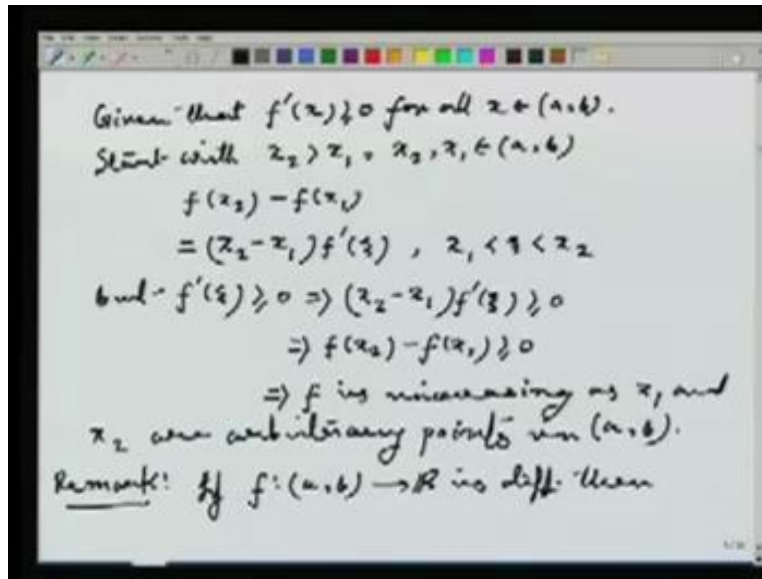 Given that f'(x) ≥ 0 for all x ∈ (a,b).
Start with x₂ > x₁, x₂, x₁ ∈ (a,b)
f(x₂) - f(x₁)
= (x₂ - x₁) f'(ξ) , x₁ < ξ < x₂
but f'(ξ) ≥ 0 ⇒ (x₂ - x₁) f'(ξ) ≥ 0
⇒ f(x₂) - f(x₁) ≥ 0
⇒ f is increasing as x₁ and
x₂ are arbitrary points in (a,b).
Remark: If f: (a,b) → R is diff. then